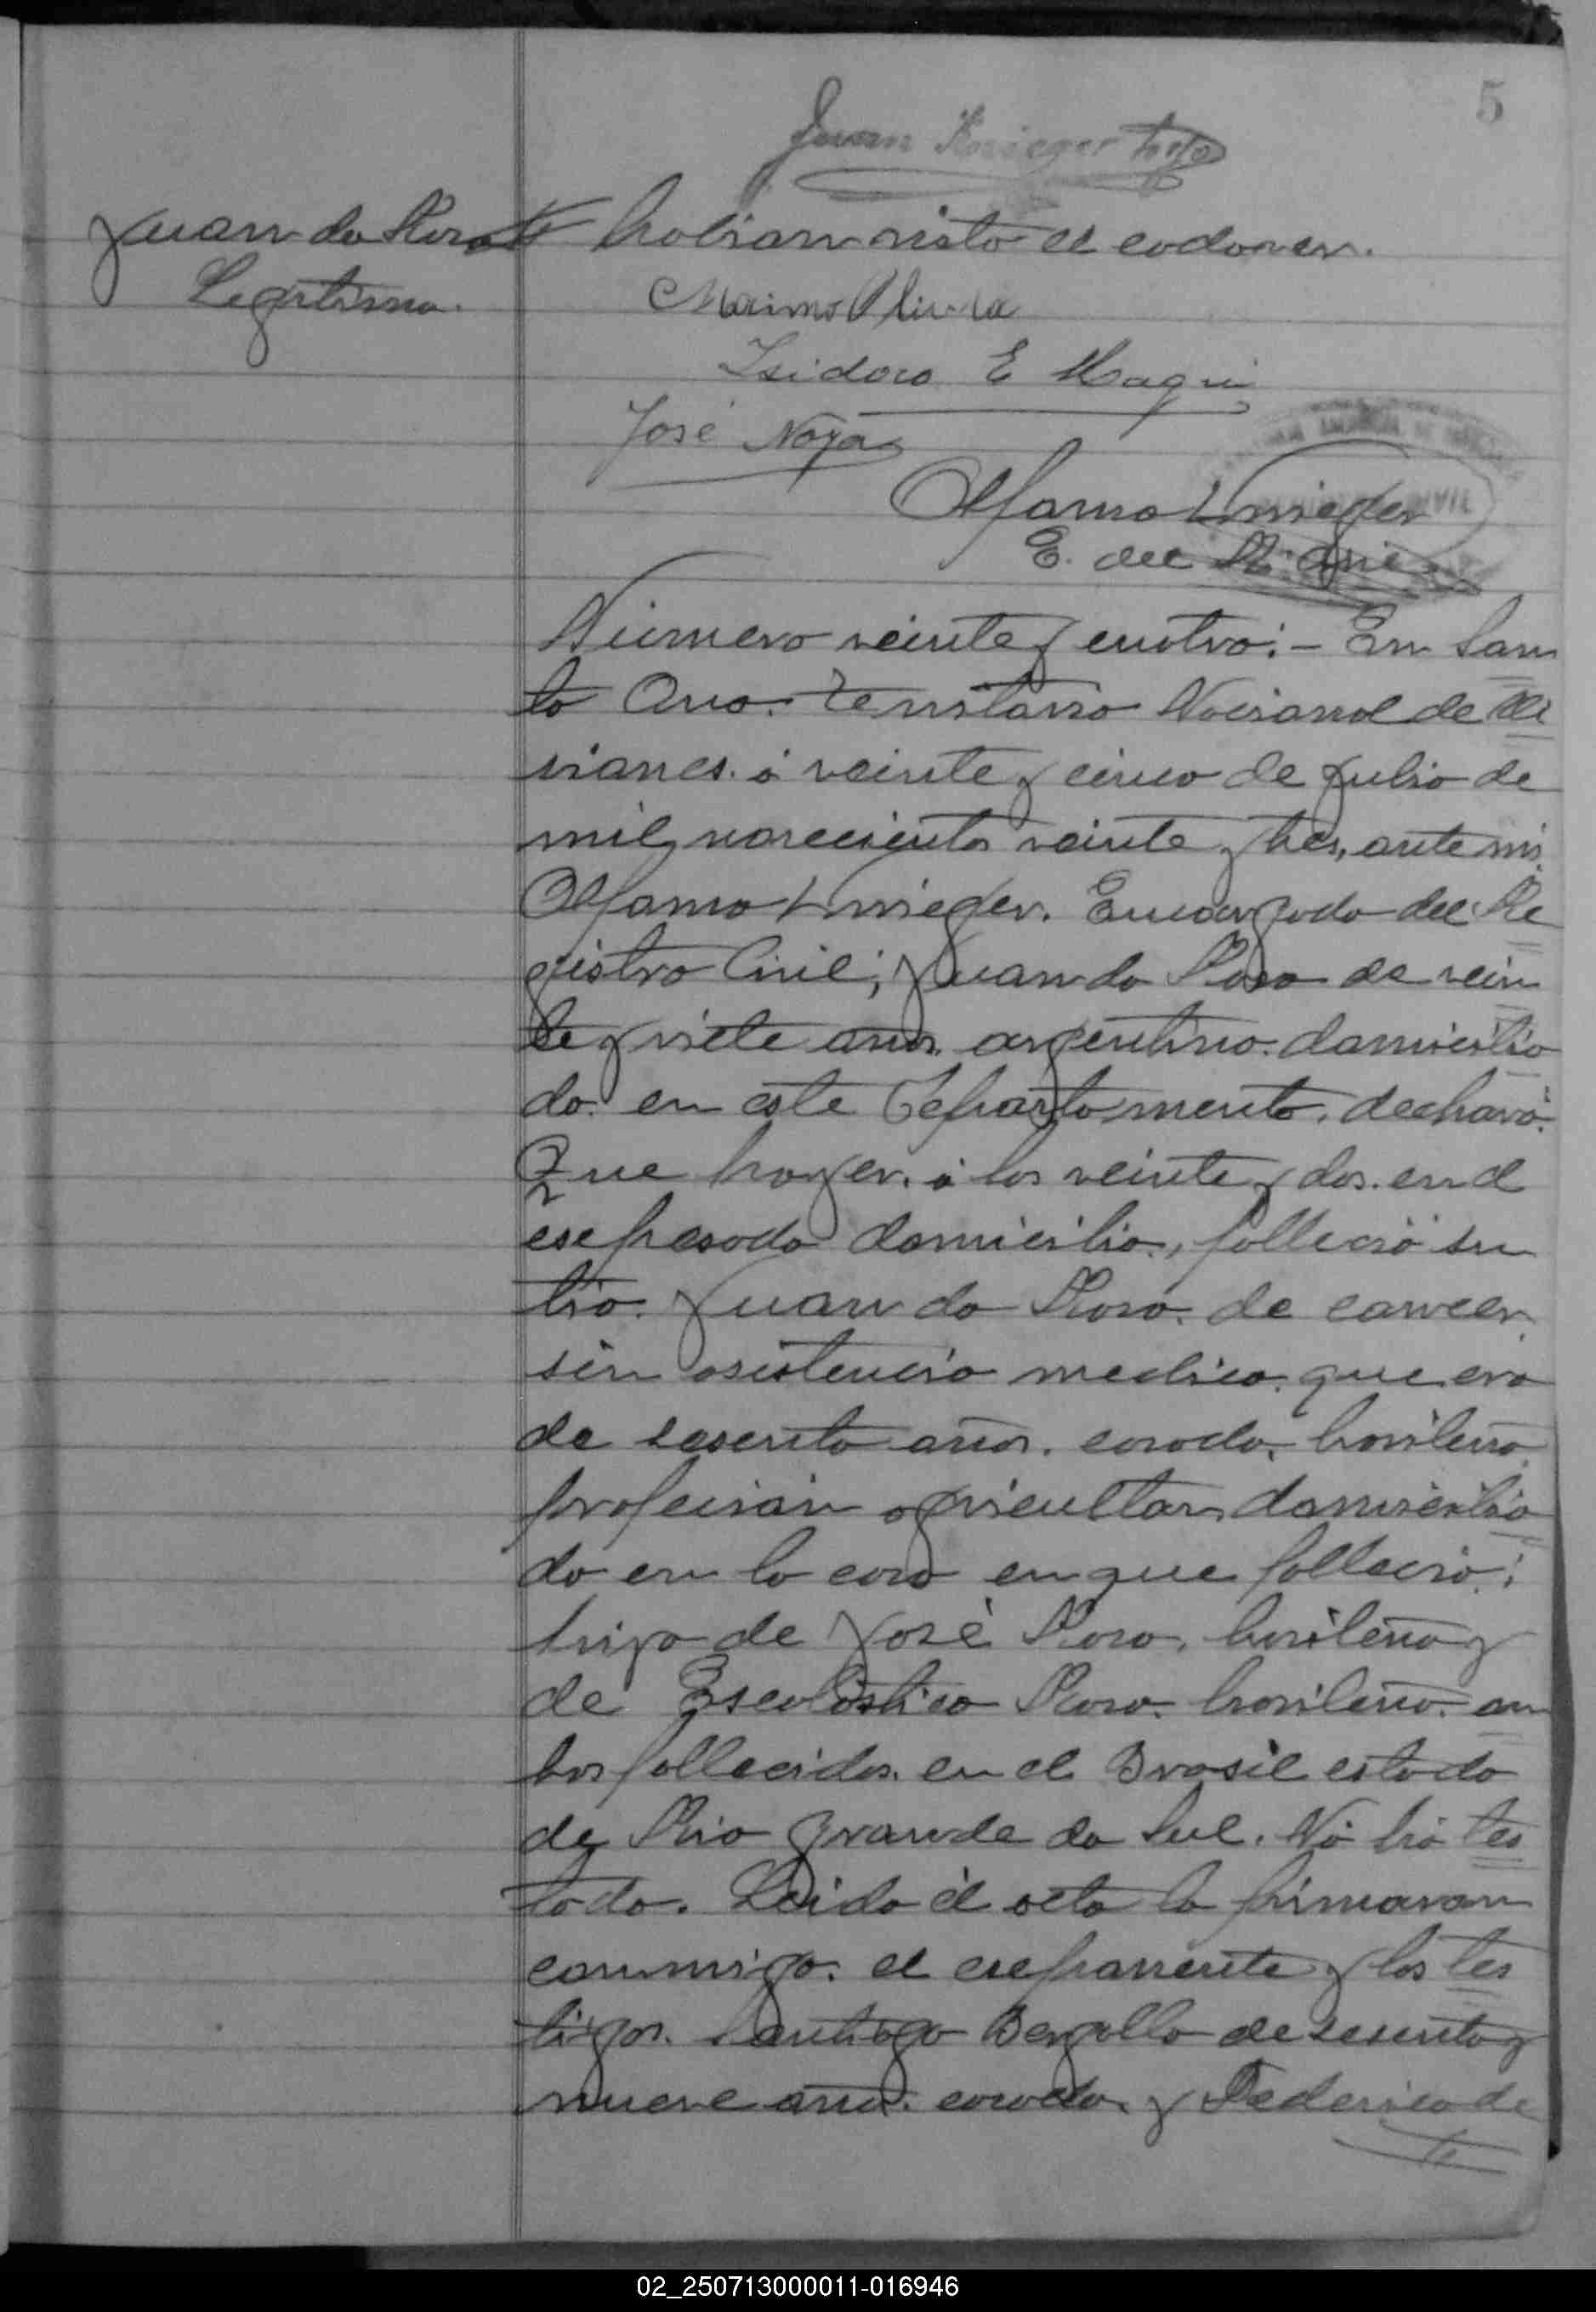 5
Juan Krieger hijo
Juan da Rosa
Legitimo.
habian visto el cadaver.
Isidoro E
José Noya
Krieger
E. del R. Civil
CIVIL
Número veinte y cuatro:- En San
ta Ana. Territorio Nacional de Mi
siones. á veinte y cinco de Julio de
mil novecientos veinte y tres, ante mi
Krieger. Encargado del Re
gistro Civil; Juan da Rosa de vein
te y siete años. argentino. domicilia
do. en este Departamento. declaró:
Que hayer. á las veinte y dos. en el
expresado domicilio, falleció su
tio. Juan da Rosa. de cancer.
sin asistencia medica. que era
de sesenta años. casado. brasilero
profecion agricultor domicilia
do en la casa en que fallecio;
hijo de José Rosa. brasilero y
de Escolastica Rosa. brasilera. am
bos fallecidos. en el Brasil estado
de Rio Grande do Sul. No há tes
tado. Leida el acta la firmaron
conmigo. el exponente y los tes
tigos. Santiago Bergallo de sesenta y
nueve años. casado. y Federico de
02_250713000011-016946